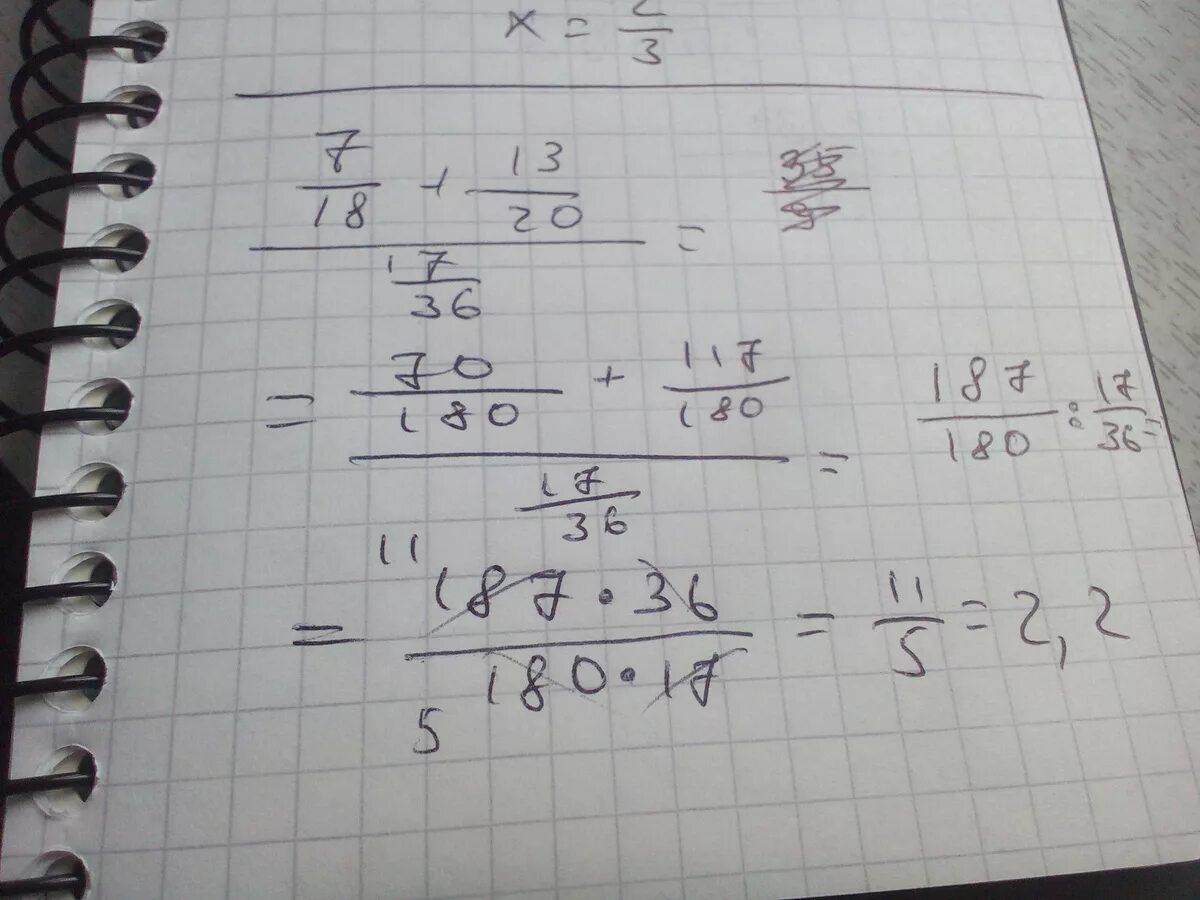 x = 2/3
7/18 + 13/20
=
17/36
= 70/180 + 117/180
= 187/180 : 17/36 =
17/36
11
= 187 · 36 / 180 · 17 = 11/5 = 2,2
5